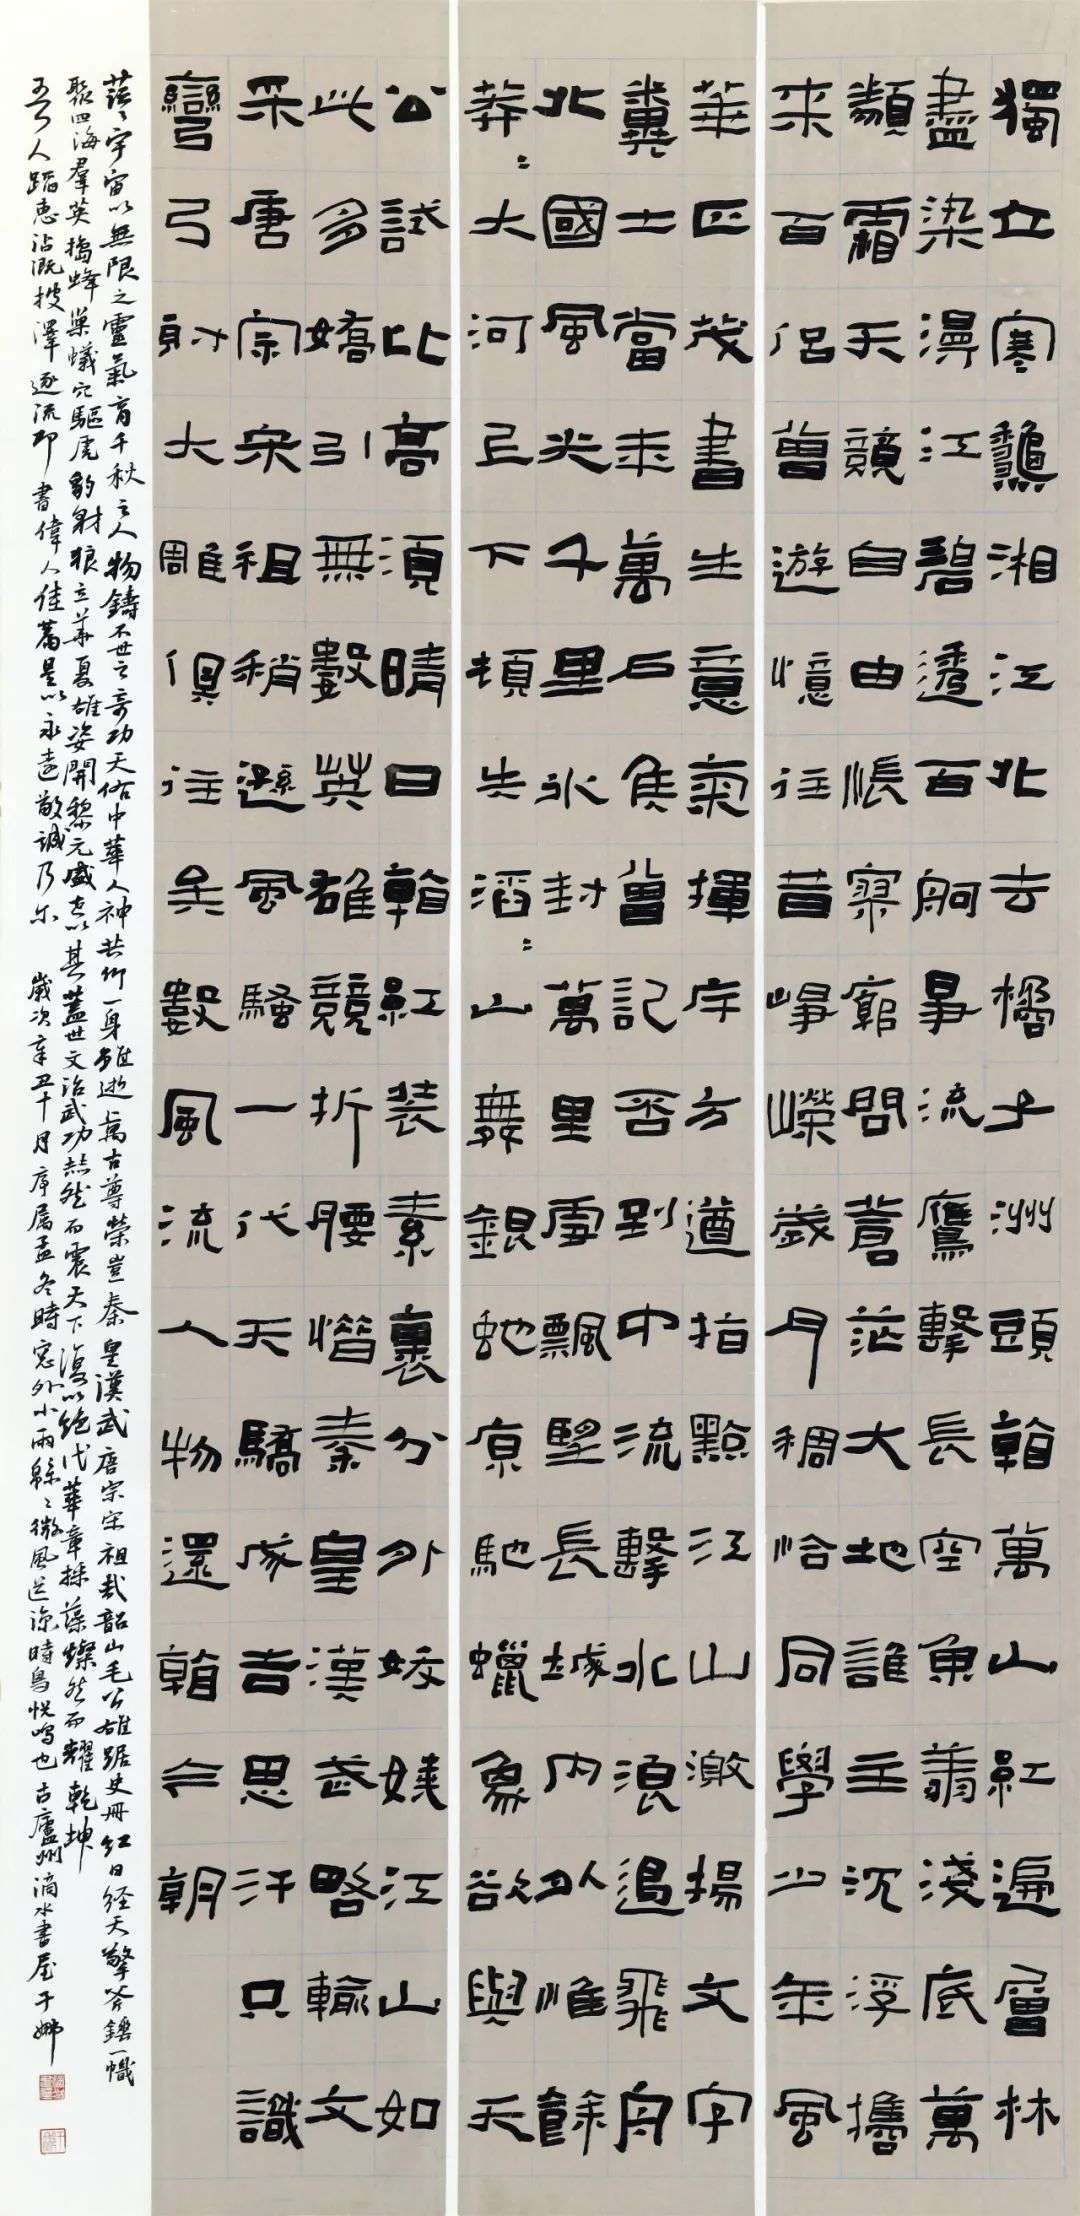 獨立寒龝湘江北去橘子洲頭看萬山紅遍層林
盡染漫江碧透百舸爭流鷹擊長空魚翔淺底萬
類霜天競自由悵寥廓問蒼茫大地誰主沈浮攜
来百侣曾遊憶往昔崢嶸歲月稠恰同學少年風
華正茂書生意氣揮斥方遒指點江山激揚文字
糞土當年萬户侯曾記否到中流擊水浪遏飛舟
北國風光千里冰封萬里雪飄望長城内外惟餘
莽〻大河上下頓失滔〻山舞銀蛇原馳蠟象欲與天
公試比高須晴日看紅装素裹分外妖嬈江山如
此多嬌引無數英雄競折腰惜秦皇漢武略輸文
采唐宗宋祖稍遜風騷一代天驕成吉思汗只識
彎弓射大雕俱往矣數風流人物還看今朝
宇宙以無限之靈氣育千秋之人物鑄不世之奇功天佑中華人神共仰一身雖逝萬古尊榮豈秦皇漢武唐宗宋祖哉韶山毛公雄踞史冊紅日経天擎斧錘一幟
聚四海羣英搗蜂巢蟻穴驅虎豹射狼立華夏雄姿開黎元盛世以其蓋世文治武功赫然而震天下復以絶代華章採藻燦然而耀乾坤
吾人蹈惠沾溉披澤逐流書偉人佳是以永遠敬誠乃尔 歲次辛丑十月序屬孟冬時窓外小雨緜〻微風送涼時鳥悦鳴也古廬州滴水書屋于娜